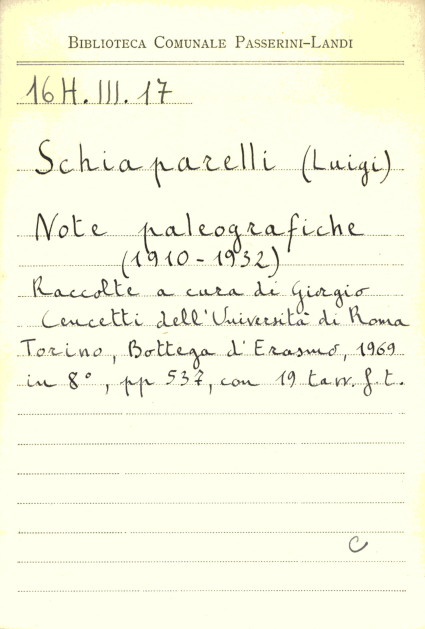 BIBLIOTECA COMUNALE PASSERINI-LANDI
16 H. III. 17
Schiaparelli (Luigi)
Note paleografiche
(1910-1932)
Raccolte a cura di Giorgio
Cencetti dell'Università di Roma
Torino, Bottega d'Erasmo, 1969
in 8°, pp 537, con 19 tavv. f. t.
C